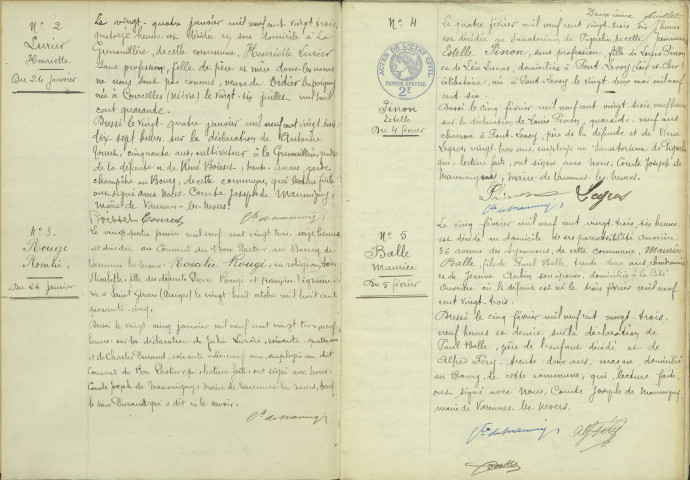 N° 2
Lurier
Henriette
Du 24 janvier
Le vingt-quatre janvier mil neuf cent vingt trois,
quatorze heures est décédée en son domicile à La
Grenouillère, de cette commune, Henriette Lurier
sans profession, fille de père et mère dont les noms
ne nous sont pas connus, veuve de Didier
née à Courcelles (Nièvre) le vingt-six juillet mil huit
cent quarante.
Dressé le vingt-quatre janvier mil neuf cent vingt trois,
dix-sept heures, sur la déclaration de Antoine
cinquante ans, cultivateur à la Grenouillère,
de la défunte et de René Boisset, trente ans, garde
champêtre au Bourg, de cette commune, qui lecture faite
ont signé avec Nous, Comte Joseph de Maumigny,
Maire de Varennes-les-Nevers.
Boisset
Cte de Maumigny
N° 3.
Rougé
Rosalie.
Du 24 janvier
Le vingt quatre janvier mil neuf cent vingt trois, seize heures
est décédée au Couvent du Bon Pasteur au Bourg de
Varennes les Nevers Rosalie Rougé, en religion, Sœur
fille des défunts Pierre Rougé et Françoise
née à Saint Girons (Ariège) le vingt huit octobre mil huit cent
soixante-cinq.
Dressé le vingt cinq janvier mil neuf cent vingt trois, neuf
heures sur la déclaration de Julien Lurier, soixante-quatre ans
et de Charles Durand, soixante-dix-neuf ans, employés au dit
Couvent du Bon Pasteur qui, lecture faite, ont signé avec nous,
Comte Joseph de Maumigny, Maire de Varennes les Nevers, sauf
le sieur Durand qui a dit ne le savoir.
Cte de Maumigny
Deuxième feuillet
N° 4
ACTES DE L'ETAT CIVIL
PAPIER SPECIAL
2F
Pinon
Estelle
Du 4 février
Le quatre février mil neuf cent vingt trois, six heures
est décédée au Sanatorium de Pignelin, de cette commune
Estelle Pinon, sans profession, fille de Louis Pinon
et de Léa Lucas, domiciliés à Pont-Levoy (Loir et Cher)
célibataire, née à Pont-Levoy le vingt-deux mai mil neuf
cent six.
Dressé le cinq février mil neuf cent vingt trois, neuf heures
sur la déclaration de Louis Pinon, quarante-neuf ans,
charron à Pont-Levoy, père de la défunte et de René
Legros, vingt trois ans, employé au Sanatorium de Pignelin
qui, lecture faite, ont signé avec nous, Comte Joseph de
Maumigny, maire de Varennes-les-Nevers.
Pinon Legros
Cte de Maumigny
N° 5
Balle
Maurice
Du 5 février
Le cinq février mil neuf cent vingt trois, six heures,
est décédé au domicile de ses parents Cité Ouvrière
36 avenue des Sycomores, de cette commune, Maurice
Balle, fils de Paul Balle, trente-deux ans, chaudronnier
et de Jeanne Aubin son épouse, domiciliés à la Cité
Ouvrière où le défunt est né le trois février mil neuf
cent vingt-trois.
Dressé le cinq février mil neuf cent vingt-trois,
neuf heures et demie sur la déclaration de
Paul Balle, père de l'enfant décédé et de
Alfred Féry, trente-deux ans, maçon, domicilié
au Bourg, de cette commune, qui, lecture faite,
ont signé avec Nous, Comte Joseph de Maumigny
maire de Varennes-les-Nevers.
Cte de Maumigny Alf Féry
Balle